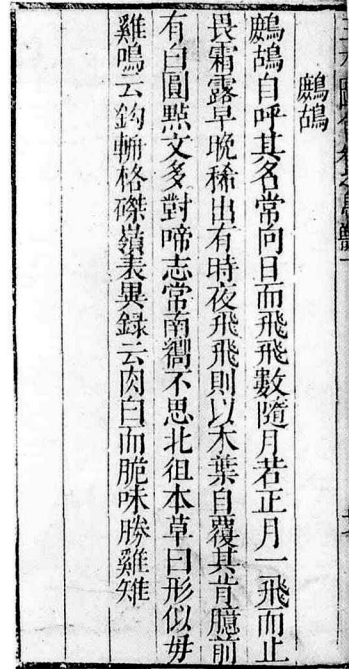 鷓鴣
鷓鴣自呼其名常向日而飛飛數隨月若正月一飛而止
畏霜露早晚稀出有時夜飛飛則以木葉自覆其背臆前
有白圓㸃文多對啼志常南嚮不思北徂本草曰形似母
雞鳴云鈎輈格磔嶺表異録云肉白而脆味勝雞雉